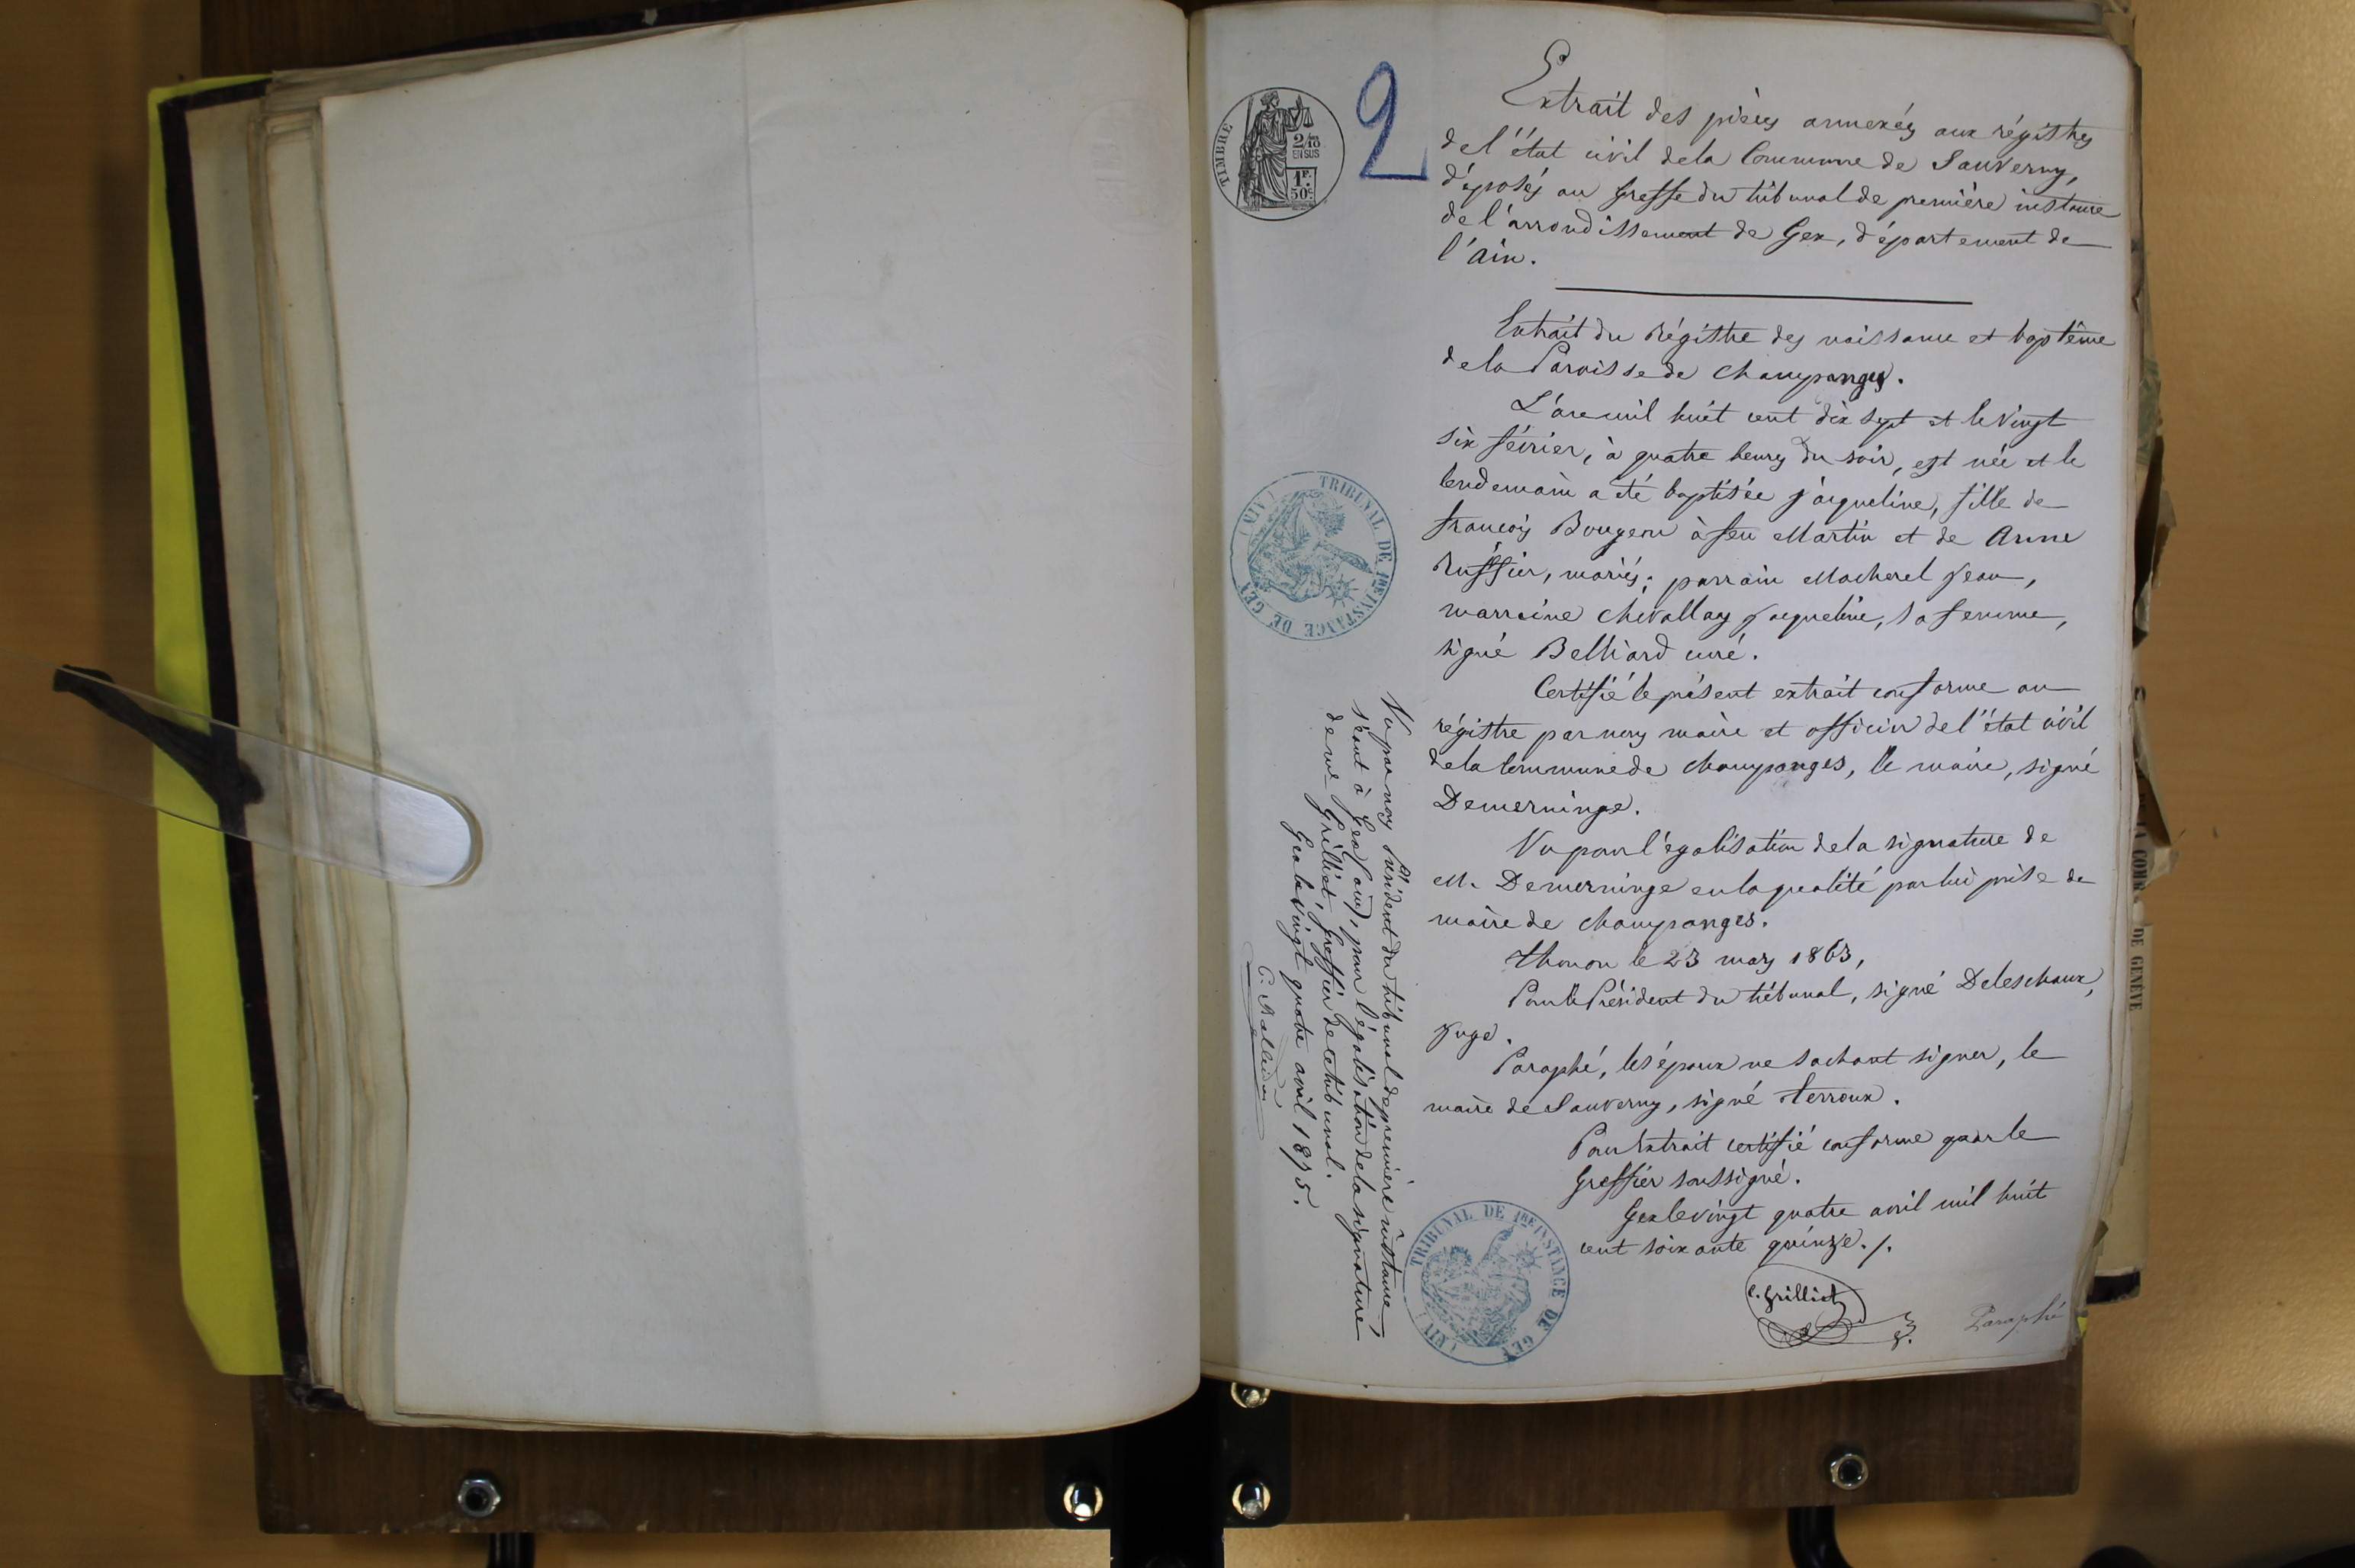 TIMBRE
2/10
EN SUS
1F.
50c.
2
Extrait des pièces annexées aux régistres
de l'état civil de la Commune de Sauverny,
déposés au Greffe du tribunal de première instance
de l'arrondissement de Gex, département de
l'Ain.
Extrait du Régistre des naissance et baptême
de la Paroisse de Champanges.
L'an mil huit cent dix sept et le vingt
six février, à quatre heures du soir, est née et le
lendemain a été baptisée Jacqueline, fille de
françois Bougeru à feu Martin et de Anne
Ruffier, mariés; parrain Macherel Jean,
marraine Chevallay Jacqueline, sa femme,
signé Belliard curé.
Certifié le présent extrait conforme au
régistre par nous maire et officier de l'état civil
de la Commune de Champanges, le maire, signé
Demerninge.
Vu pour légalisation de la signature de
M. Demerninge en la qualité par lui prise de
maire de Champanges.
Thonon le 23 mars 1863,
Pour le Président du tribunal, signé Deleschaux,
Juge.
Paraphé, les époux ne sachant signer, le
maire de Sauverny, signé Terroux.
Pour Extrait certifié conforme par le
Greffier soussigné.
Gex le vingt quatre avril mil huit
cent soixante quinze./.
C. Grilliet
Paraphé
Vu par nous Président du tribunal de première instance,
séant à Gex (Ain), pour légalisation de la signature
de me Grilliet, Greffier de ce tribunal.
Gex le vingt quatre avril 1875.
TRIBUNAL DE 1RE INSTANCE DE GEX (AIN)
TRIBUNAL DE 1RE INSTANCE DE GEX (AIN)
DE GENÈVE